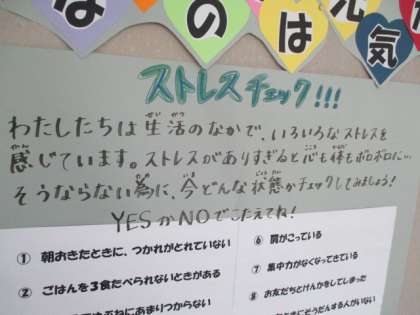 な の は 気
ストレスチェック!!!
わたしたちは生活のなかで、いろいろなストレスを
感じています。ストレスがありすぎると心も体もボロボロに…
そうならない為に、今どんな状態かチェックしてみましょう!
YESかNOでこたえてね!
① 朝おきたときに、つかれがとれていない
② ごはんを3食たべられないときがある
あまりつからない
⑥ 肩がこっている
⑦ 集中力がなくなってきている
⑧ お友だちとけんかをしてしまった